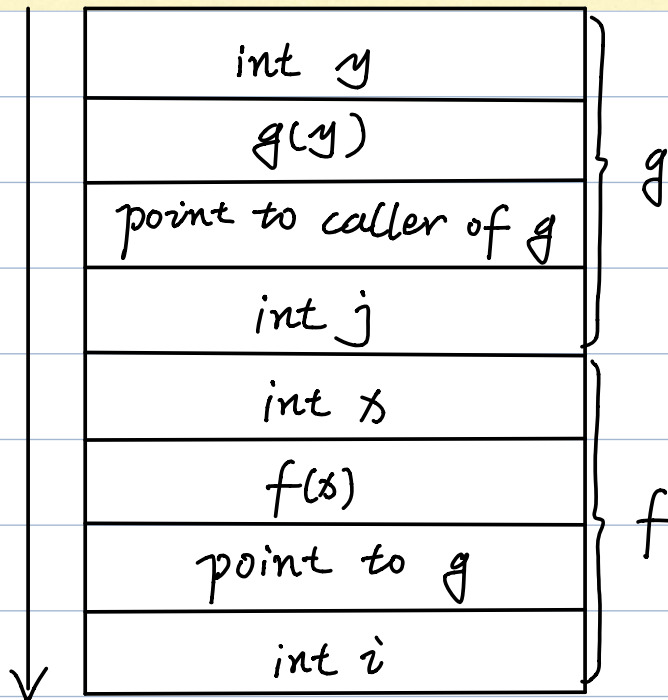 int y
g(y)
point to caller of g
int j
g
int x
f(x)
point to g
int i
f